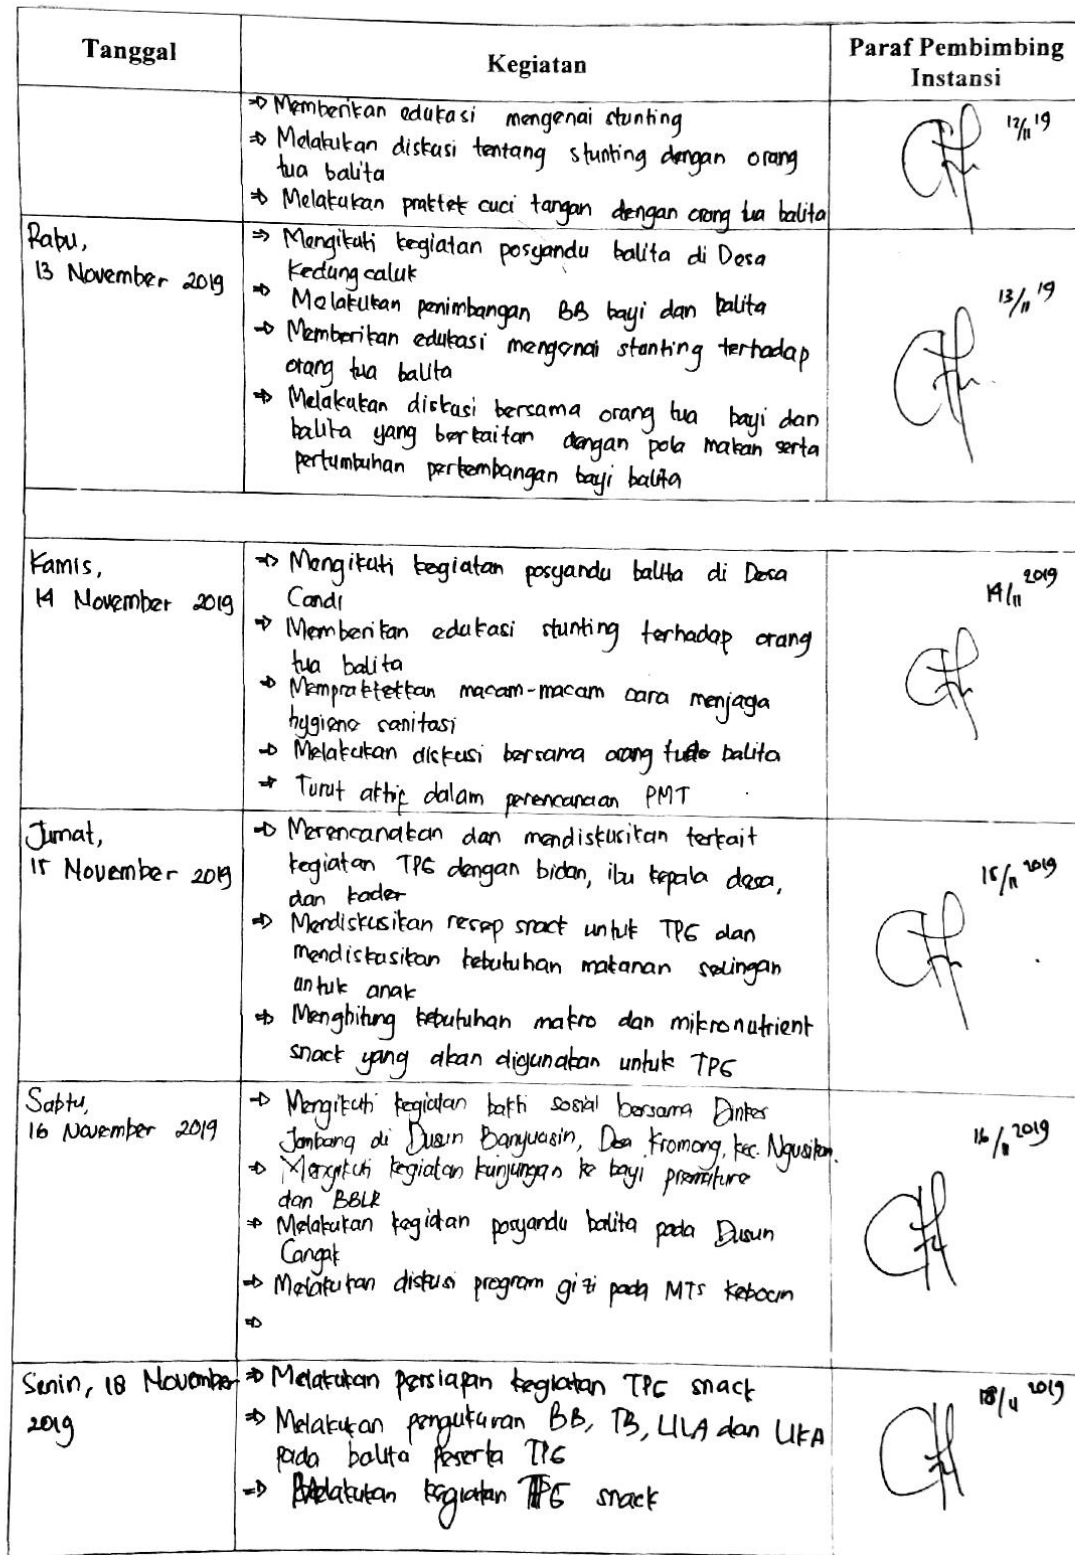 Tanggal
Kegiatan
Paraf Pembimbing
Instansi
⇒ Memberikan edukasi mengenai stunting
⇒ Melakukan diskusi tentang stunting dengan orang
tua balita
⇒ Melakukan praktek cuci tangan dengan orang tua balita
12/11 19
Rabu,
13 November 2019
⇒ Mengikuti kegiatan posyandu balita di Desa
Kedung caluk
⇒ Melakukan penimbangan BB bayi dan balita
⇒ Memberikan edukasi mengenai stanting terhadap
orang tua balita
⇒ Melakukan diskusi bersama orang tua bayi dan
balita yang berkaitan dengan pola makan serta
pertumbuhan perkembangan bayi balita
13/11 19
Kamis,
14 November 2019
⇒ Mengikuti kegiatan posyandu balita di Desa
Candi
⇒ Memberikan edukasi stunting terhadap orang
tua balita
⇒ Mempraktekkan macam-macam cara menjaga
hygiene sanitasi
⇒ Melakukan diskusi bersama orang tua balita
⇒ Turut aktif dalam perencanaan PMT
14/11 2019
Jumat,
15 November 2019
⇒ Merencanakan dan mendiskusikan terkait
kegiatan TPG dengan bidan, ibu kepala desa,
dan kader
⇒ Mendiskusikan resep snack untuk TPG dan
mendiskusikan kebutuhan makanan selingan
untuk anak
⇒ Menghitung kebutuhan makro dan mikronutrient
snack yang akan digunakan untuk TPG
15/11 2019
Sabtu,
16 November 2019
⇒ Mengikuti kegiatan bakti sosial bersama Dinkes
Jombang di Dusun Banyuasin, Desa Kromong, kec. Ngusikan.
⇒ Mengikuti kegiatan kunjungan ke bayi premature
dan BBLR
⇒ Melakukan kegiatan posyandu balita pada Dusun
Cangak
⇒ Melakukan diskusi program gizi pada MTs Keboan
⇒
16/11 2019
Senin, 18 November
2019
⇒ Melakukan persiapan kegiatan TPG snack
⇒ Melakukan pengukuran BB, TB, LILA dan LIKA
pada balita peserta TPG
⇒ Melakukan kegiatan TPG snack
18/11 2019